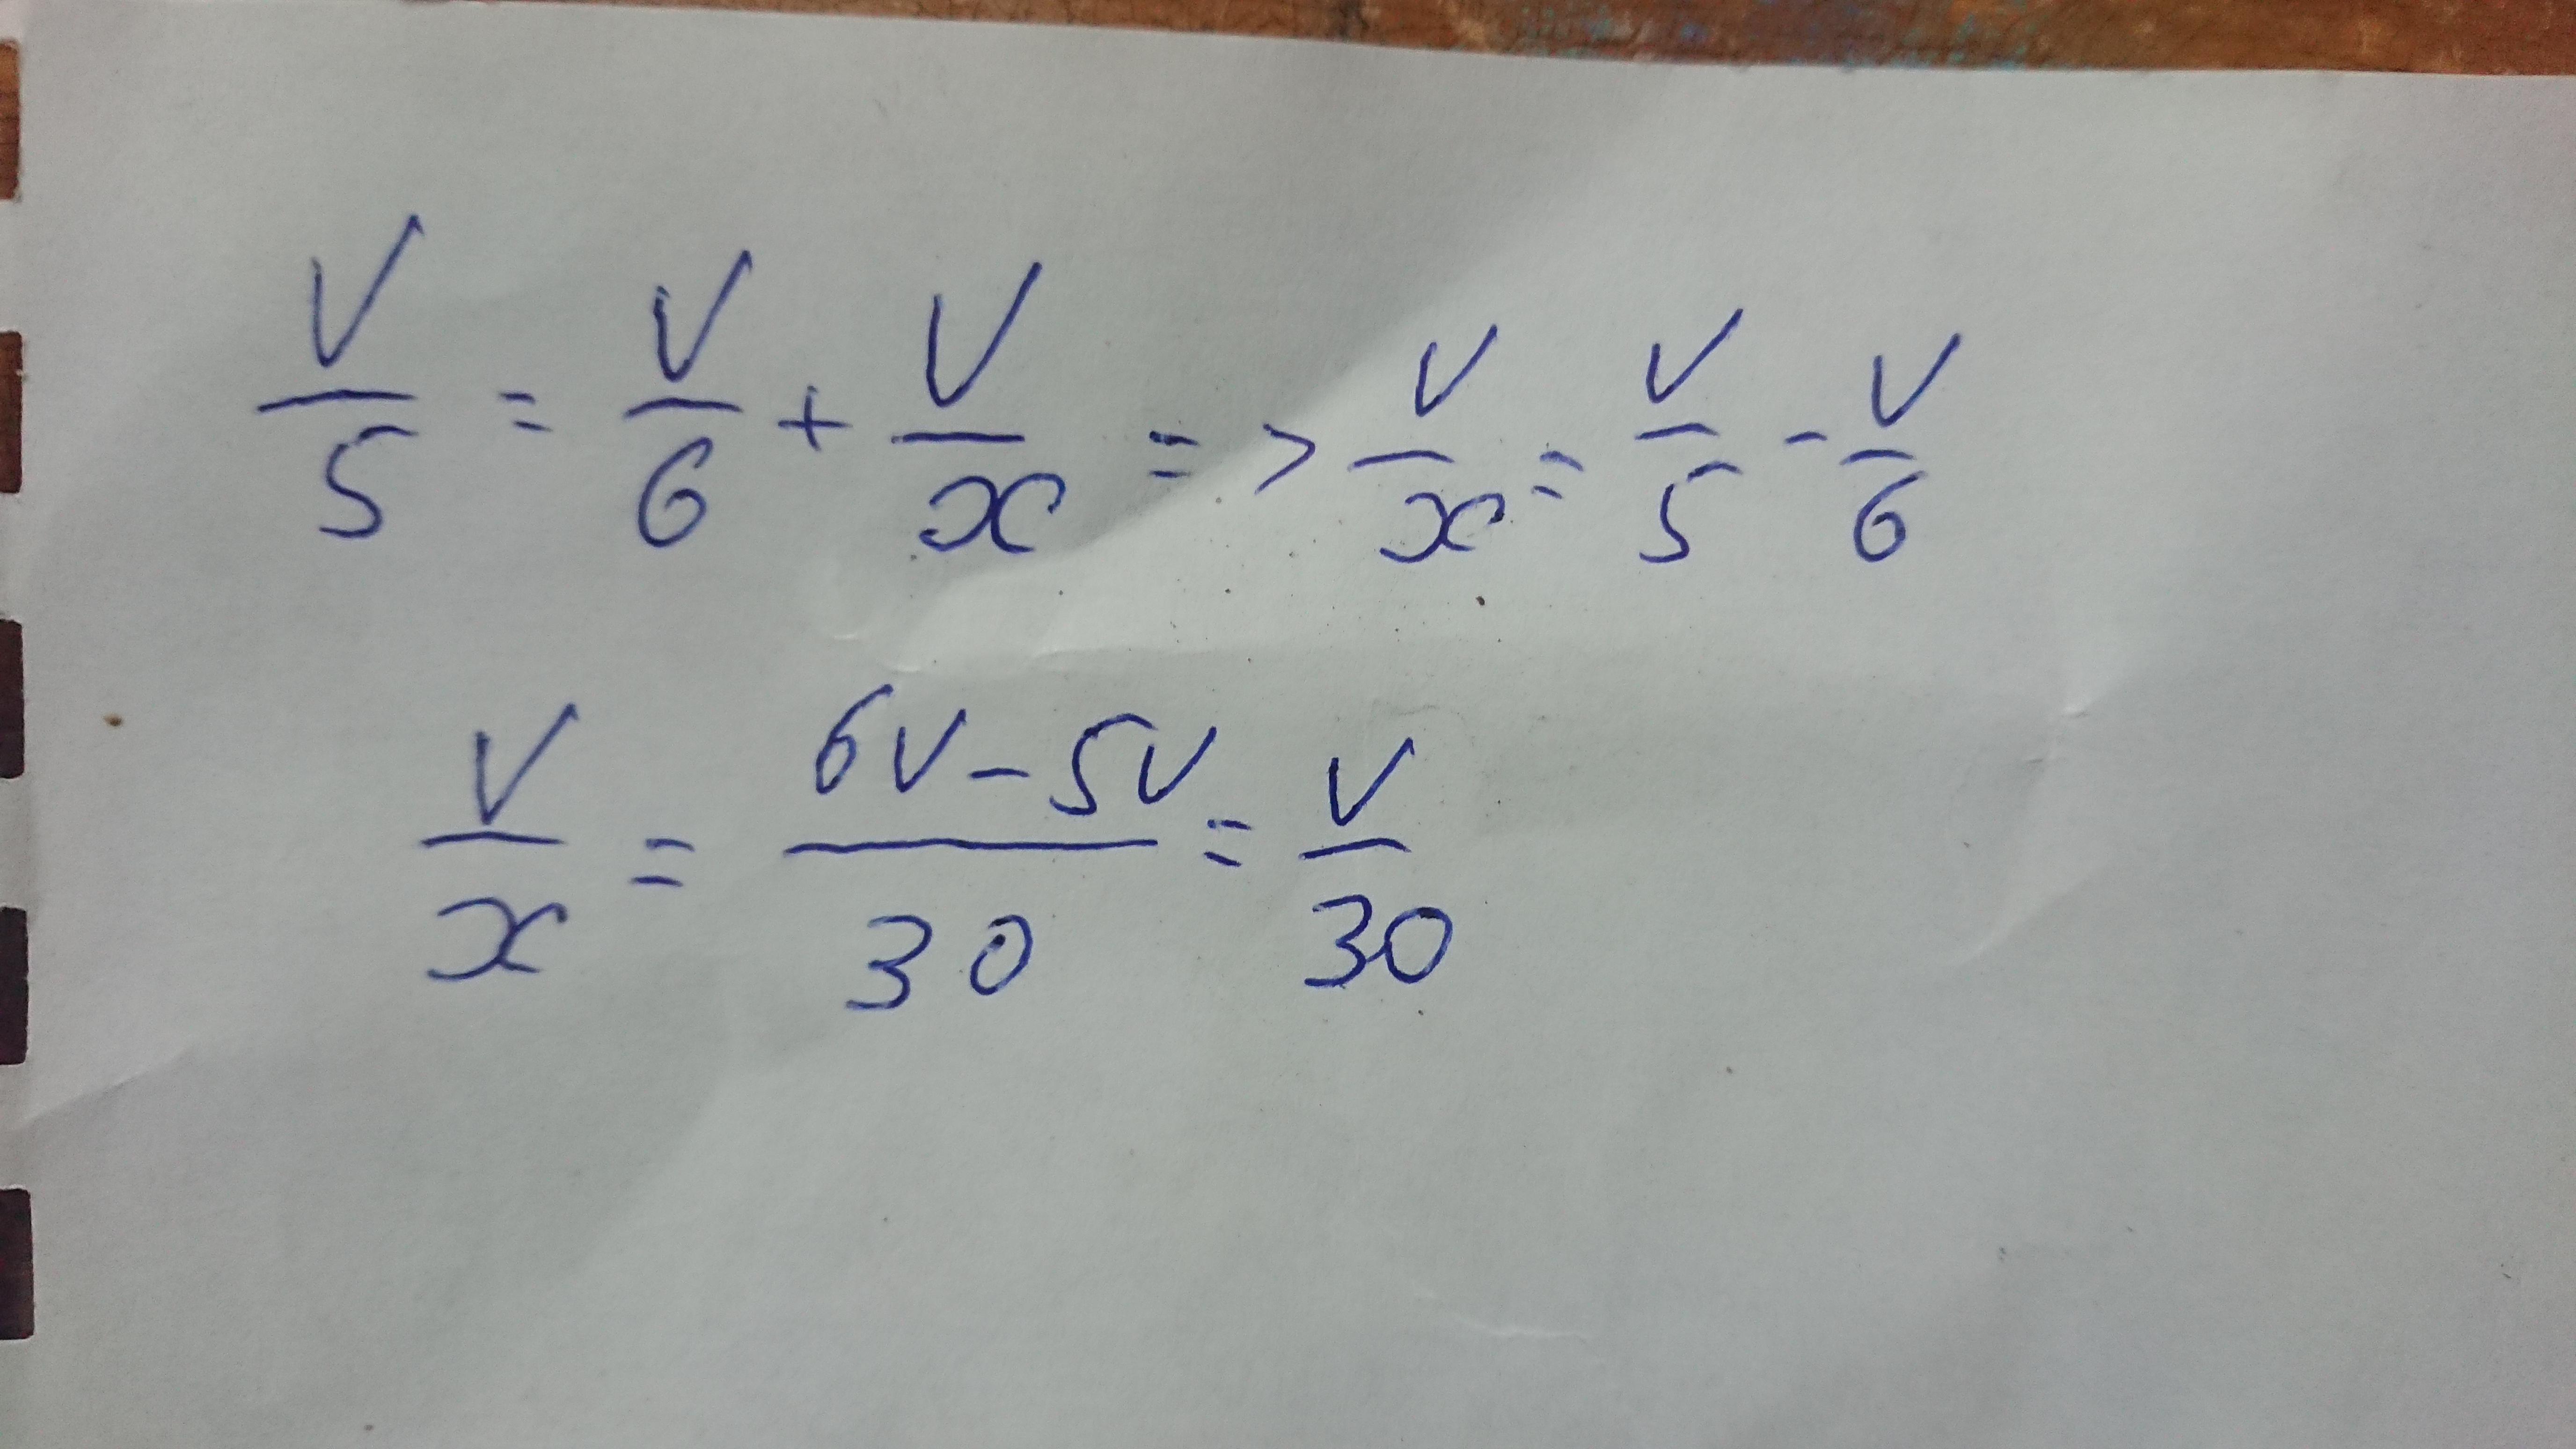 V/5 = V/6 + V/x => V/x = V/5 - V/6
V/x = (6V - 5V)/30 = V/30